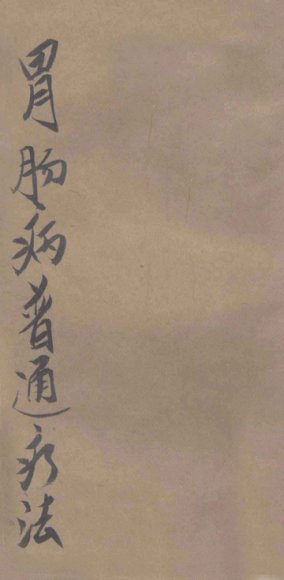 胃肠病普通疗法